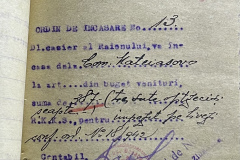 ORDIN DE INCASARE No. 13.
Dl.casier al Raionului, va in-
casa dela Com. Mateiasovo
la art.... din buget venituri,
suma de 387 (trei sute optzeci
șeapte)
R.K.K.S. pentru impozit pe
conf. ord. No
Contabil,